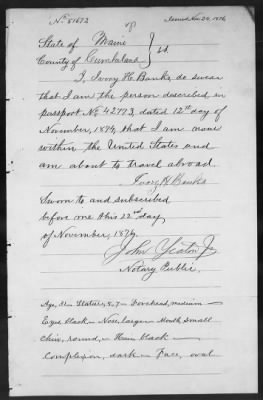 No. 51672
Issued Nov 24, 1876
State of Maine } ss.
County of Cumberland }
I, Ivory H. Banks, do swear
that I am the person described in
passport No. 42773, dated 12th day of
November, 1874, that I am now
within the United States and
am about to travel abroad
Ivory H Banks
Sworn to and subscribed
before me this 22nd day
of November, 1876.
John Yeaton Jr
Notary Public.
Age, 31 — Stature, 5.7 — Forehead, medium —
Eyes black — Nose, larger — Mouth, small
chin, round, — Hair black —
Complexion, dark — Face, oval